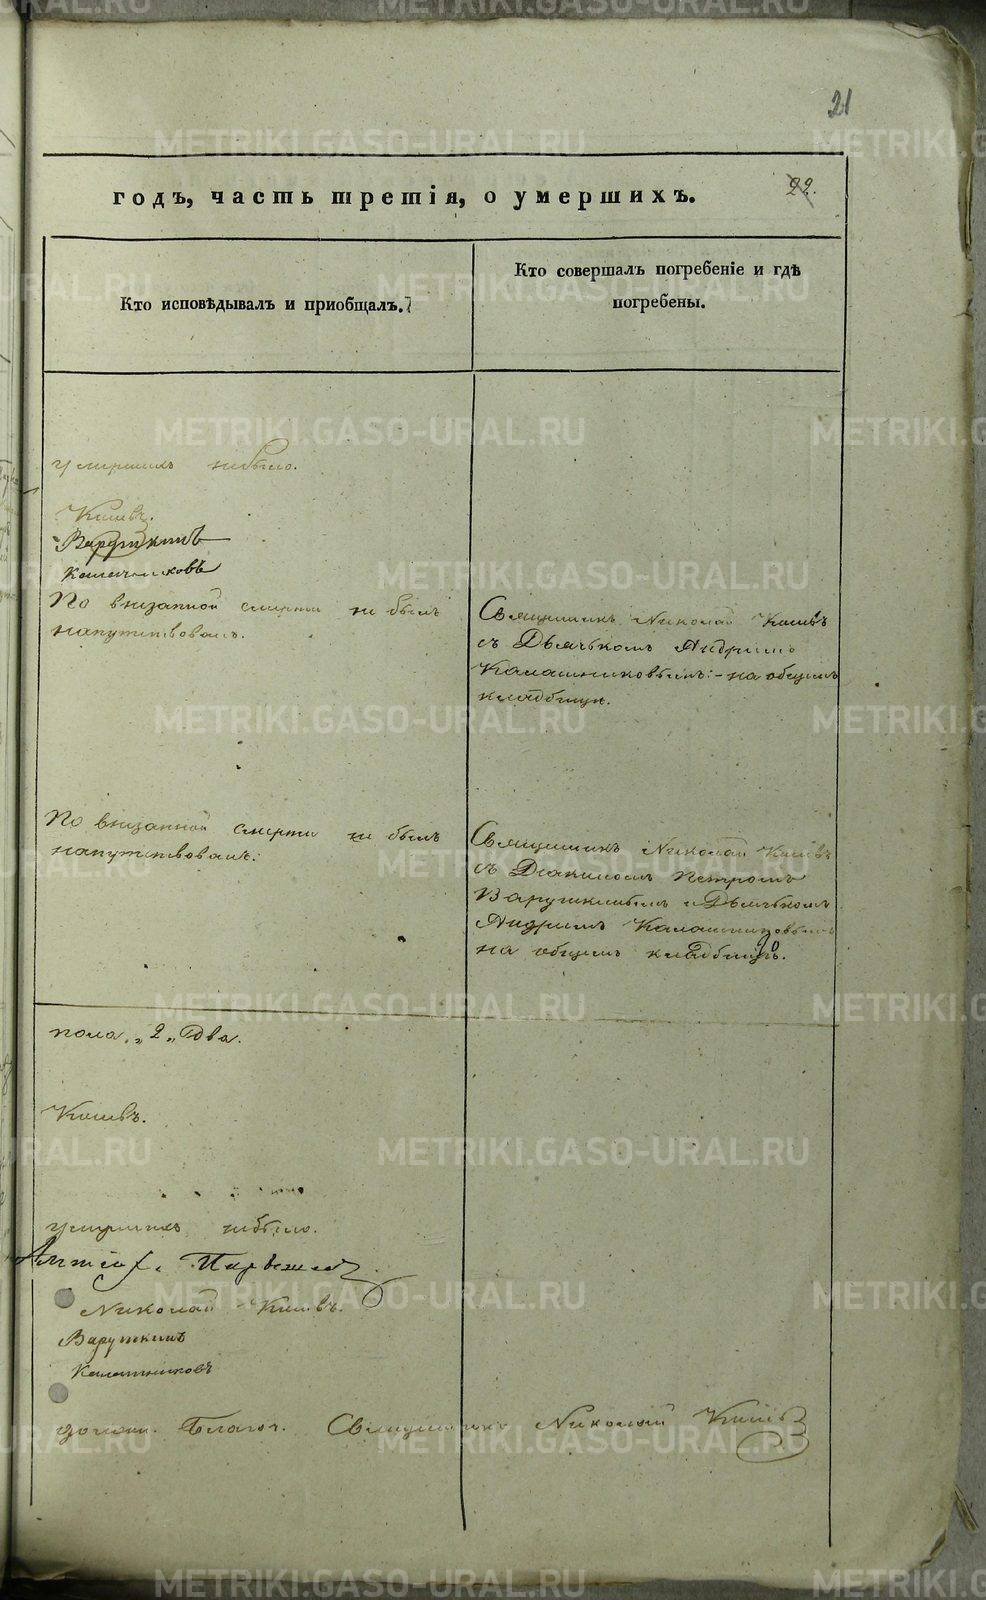 21
годъ, часть третія, о умершихъ.
22.
Кто исповѣдывалъ и приобщалъ.
Кто совершалъ погребеніе и гдѣ
погребены.
умершихъ небыло.
Варушкинъ
Калашниковъ
По внезапной смерти не былъ
напутствованъ.
Священникъ Николай
съ Дьячькомъ Андреемъ
Калашниковымъ: - на общемъ
кладбищѣ.
По внезапной смерти не былъ
напутствованъ.
Священникъ Николай
съ Діакономъ Петромъ
Варушкинымъ и Дьячькомъ
Андреемъ Калашниковымъ
на общемъ кладбищѣ.
пола "2" Два.
умершихъ небыло.
Николай
Варушкинъ
Калашниковъ
Благоч. Священникъ Николай
METRIKI.GASO-URAL.RU